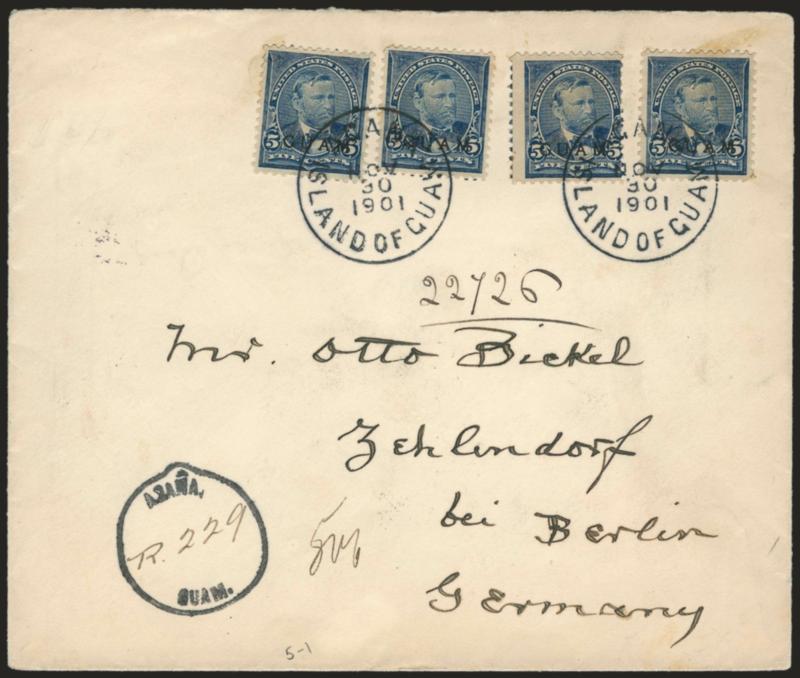 UNITED STATES POSTAGE UNITED STATES POSTAGE UNITED STATES POSTAGE UNITED STATES POSTAGE
5 GUAM 5 5 GUAM 5 5 GUAM 5 5 GUAM 5
FIVE CENTS FIVE CENTS FIVE CENTS FIVE CENTS
NOV
30
1901
ISLAND OF GUAM
NOV
30
1901
ISLAND OF GUAM
22726
Mr. Otto Bickel
Zehlendorf
bei Berlin
Germany
AGAÑA,
R. 229
GUAM.
5-1